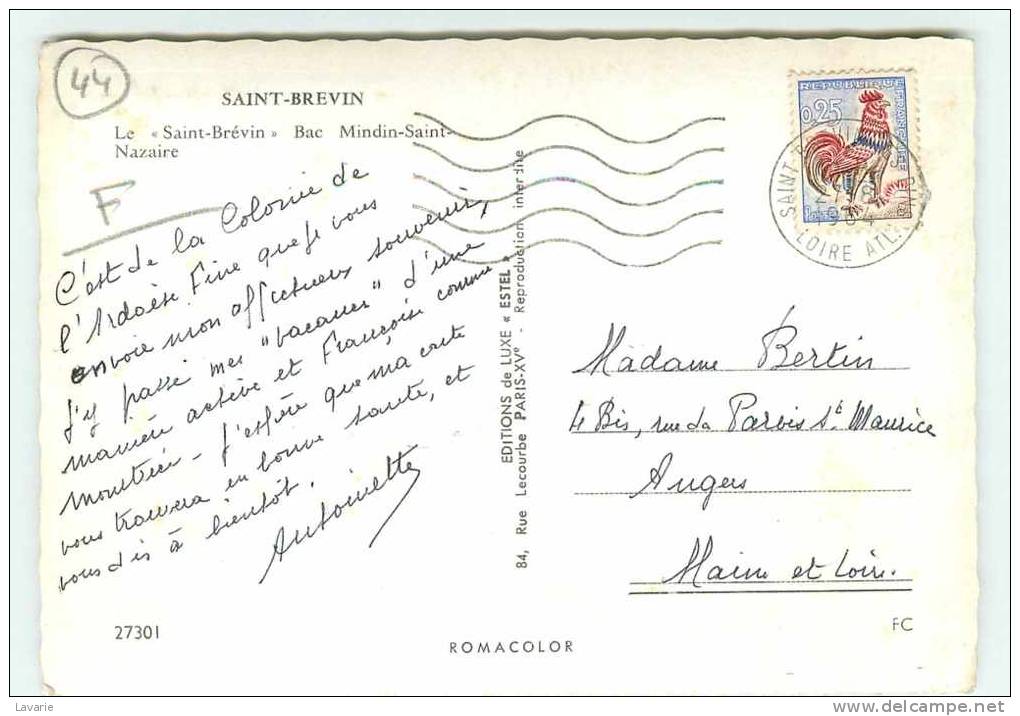 44
SAINT-BREVIN
Le « Saint-Brévin » Bac Mindin-Saint-
Nazaire
F
C'est de la Colonie de
l'Ardoise Fine que je vous
envoie mon affectueux souvenir,
J'y passe mes "vacances" d'une
manière active et Françoise comme
monitrice - J'espère que ma carte
vous trouvera en bonne santé, et
vous dis à bientôt.
Antoinette
27301
ROMACOLOR
EDITIONS de LUXE « ESTEL »
84, Rue Lecourbe PARIS-XVe - Reproduction interdite
REPUBLIQUE FRANÇAISE
0,25
SAINT
LOIRE ATL.
Madame Bertin
4 Bis, rue du Parvis St Maurice
Angers
Maine et Loire.
FC
Lavarie
http://www.delcampe.net